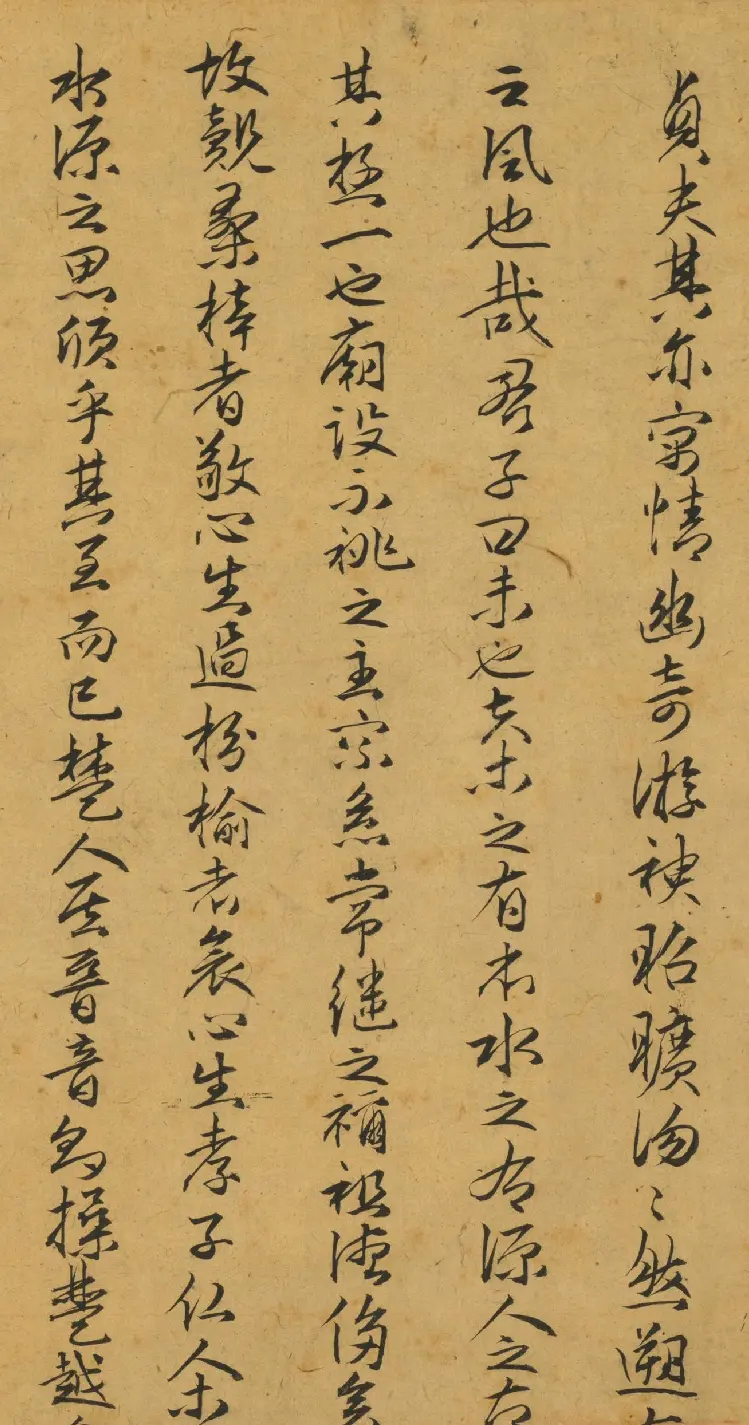 貞夫其亦寓情幽奇游神昭曠沕〻然遡
之風也哉君子曰未也夫木之有本水之有源人之有
其極一也廟設不祧之主宗系常繼之禰祖德備矣
故覩桑梓者敬心生過枌榆者哀心生孝子仁人木
水源之思傾乎其至而已楚人居晉音為操楚越